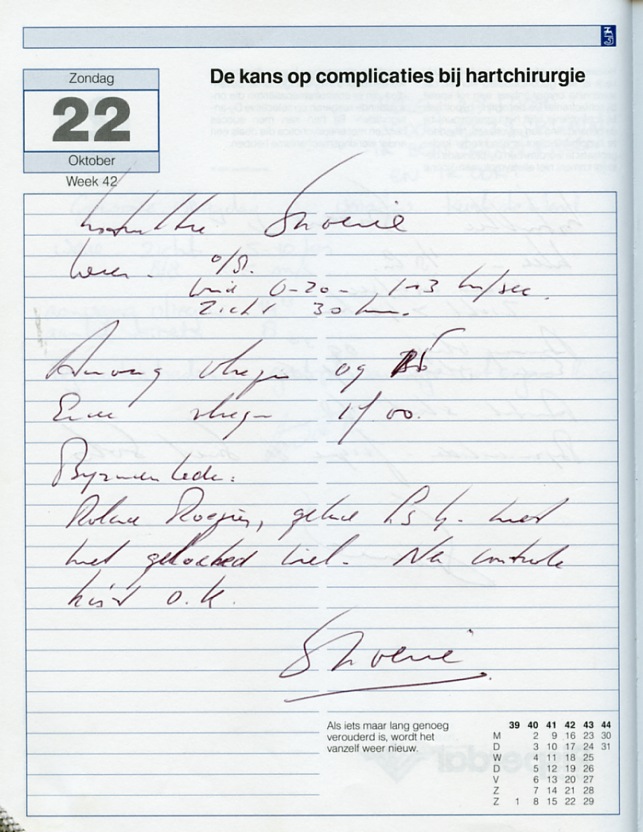 De kans op complicaties bij hartchirurgie
Zondag
22
Oktober
Week 42
weer. o/s.
wind 0-20 - 1-3 m/sec.
Zicht 30 km.
Aanvang vliegen 09
Einde vliegen 17 00.
Bijzonderheden:
Roland, gehele met
met wiel. Na controle
kist O.K.
Als iets maar lang genoeg
verouderd is, wordt het
vanzelf weer nieuw.
39 40 41 42 43 44
M 2 9 16 23 30
D 3 10 17 24 31
W 4 11 18 25
D 5 12 19 26
V 6 13 20 27
Z 7 14 21 28
Z 1 8 15 22 29